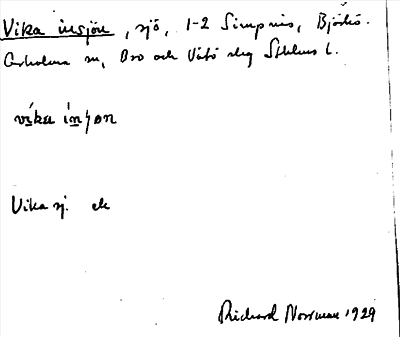 Vika insjön, sjö, 1-2 Simpnäs, Björkö-
Arholma sn, Bro och Vätö skg Sthlms l.
vika insjon
Vika sj. ek
Richard Norrman 1929